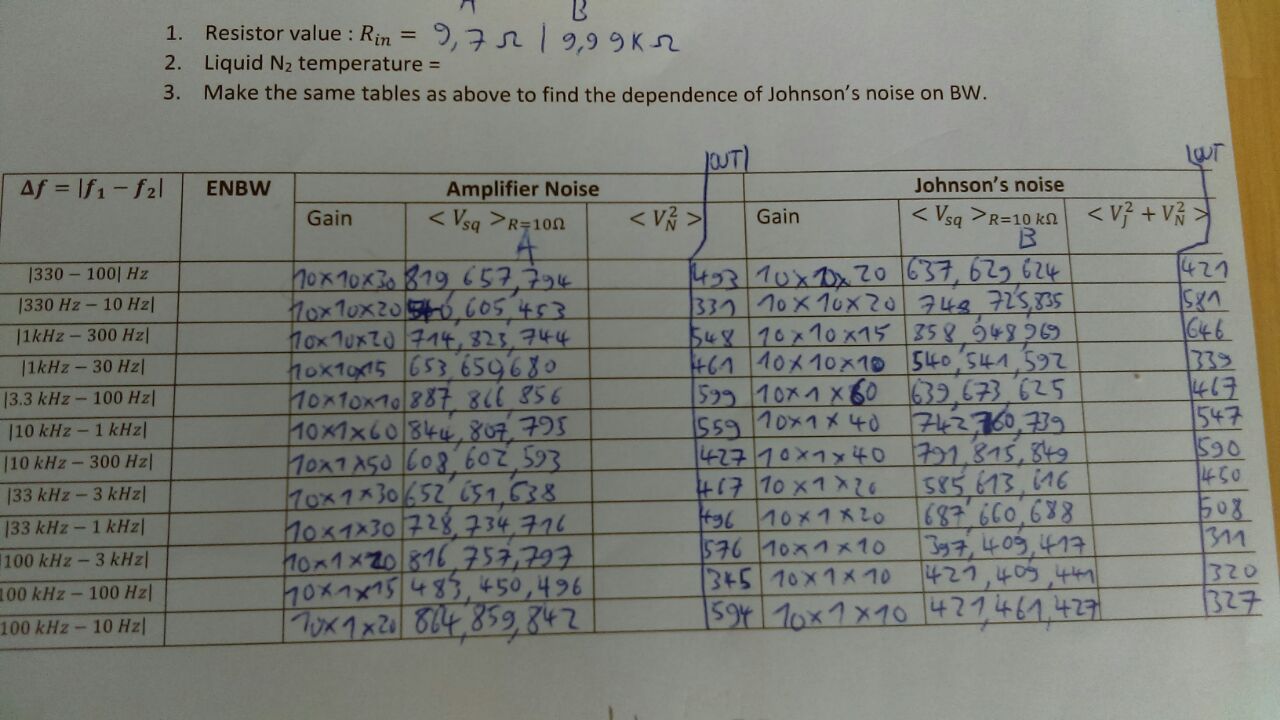 A B
1. Resistor value : R_in = 9,7 Ω | 9,99 KΩ
2. Liquid N2 temperature =
3. Make the same tables as above to find the dependence of Johnson's noise on BW.
|OUT| |OUT
Δf = |f1 − f2| ENBW Amplifier Noise Johnson's noise
Gain < Vsq >R=10Ω < V_N^2 > Gain < Vsq >R=10 kΩ < V_J^2 + V_N^2 >
A B
|330 − 100| Hz 10×10×30 819, 657, 794 493 10×10×20 637, 629, 624 421
|330 Hz − 10 Hz| 10×10×20 , 605, 453 331 10×10×20 748, 725, 835 581
|1kHz − 300 Hz| 10×10×20 714, 823, 744 548 10×10×15 858, 948, 969 646
|1kHz − 30 Hz| 10×10×15 653, 650, 680 461 10×10×10 540, 541, 592 339
|3.3 kHz − 100 Hz| 10×10×10 887, 866, 856 599 10×1×60 639, 673, 625 467
|10 kHz − 1 kHz| 10×1×60 844, 807, 795 559 10×1×40 742, 760, 739 547
|10 kHz − 300 Hz| 10×1×50 608, 602, 593 427 10×1×40 791, 815, 849 590
|33 kHz − 3 kHz| 10×1×30 652, 651, 638 467 10×1×20 585, 613, 616 450
|33 kHz − 1 kHz| 10×1×30 728, 734, 716 496 10×1×20 687, 660, 688 508
100 kHz − 3 kHz| 10×1×20 816, 757, 797 576 10×1×10 397, 409, 417 311
100 kHz − 100 Hz| 10×1×15 483, 450, 496 345 10×1×10 421, 409, 441 320
100 kHz − 10 Hz| 10×1×20 864, 859, 842 594 10×1×10 421, 461, 427 327